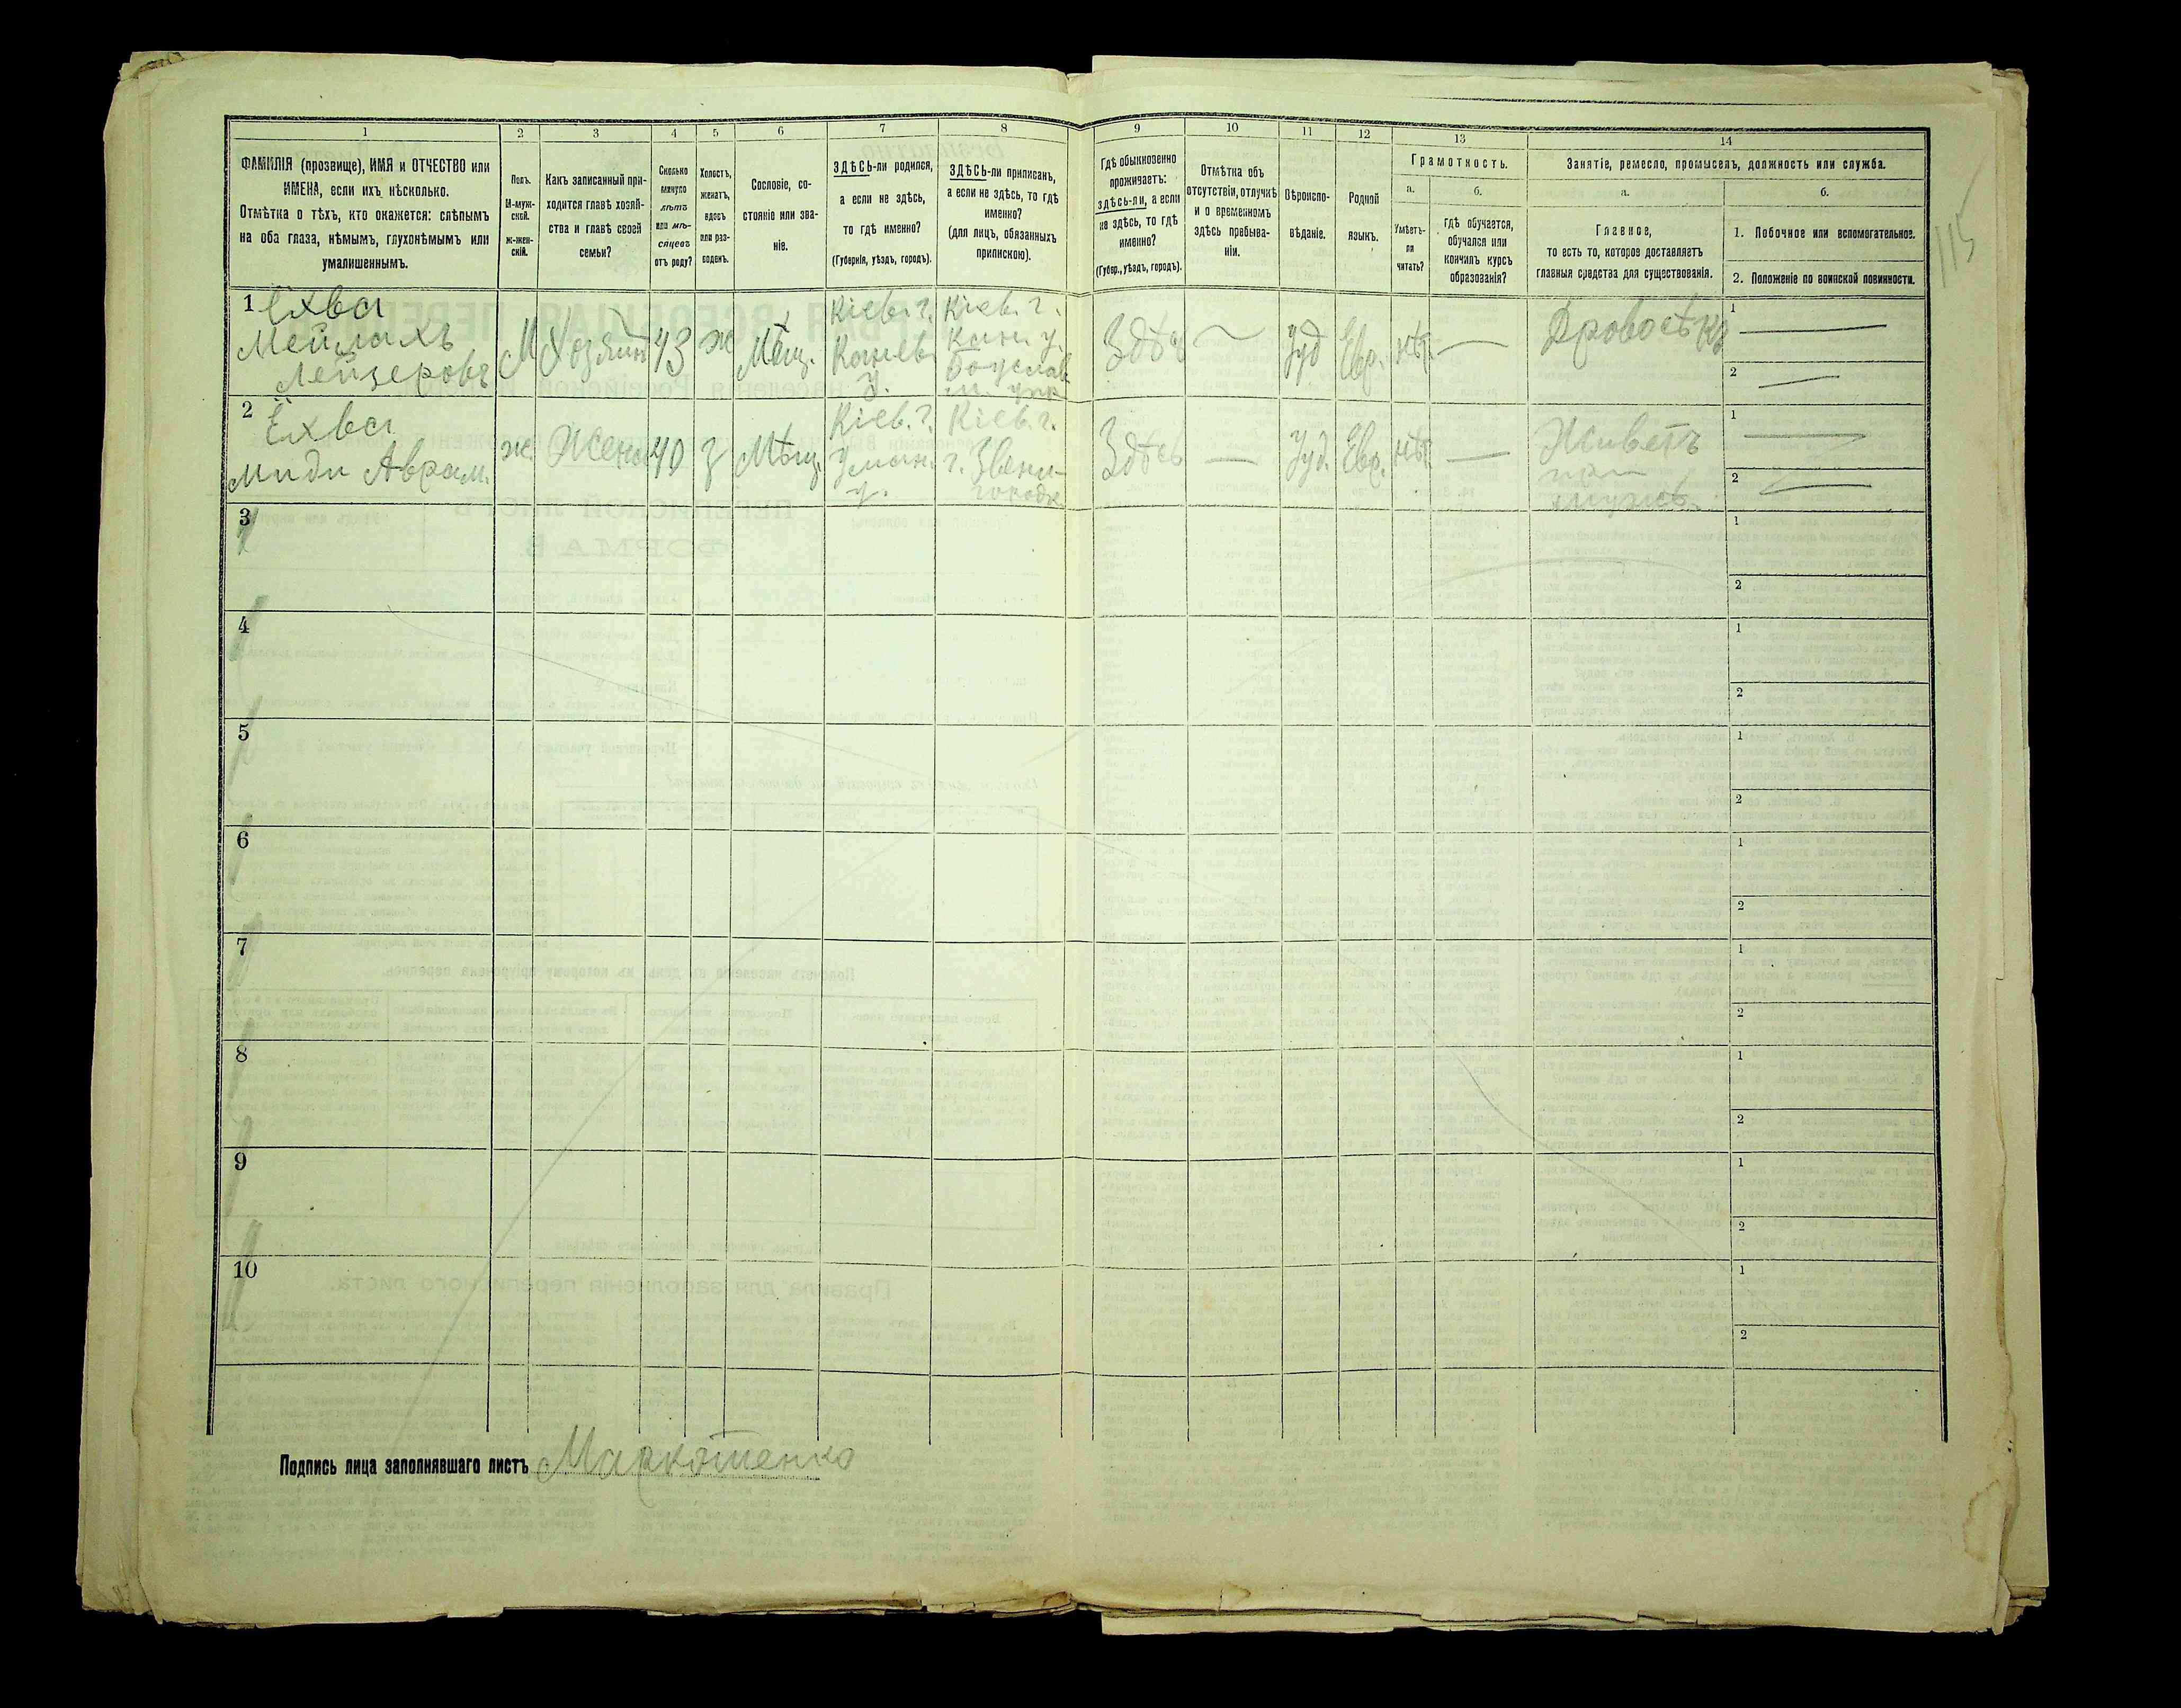 1 2 3 4 5 6 7 8 9 10 11 12 13 14
ФАМИЛІЯ (прозвище), ИМЯ и ОТЧЕСТВО или
ИМЕНА, если ихъ нѣсколько.
Отмѣтка о тѣхъ, кто окажется: слѣпымъ
на оба глаза, нѣмымъ, глухонѣмымъ или
умалишеннымъ.
Полъ.
М-муж-
ской.
ж-жен-
скій.
Какъ записанный при-
ходится главѣ хозяй-
ства и главѣ своей
семьи?
Сколько
минуло
лѣтъ
или мѣ-
сяцевъ
отъ роду?
Холостъ,
женатъ,
вдовъ
или раз-
веденъ.
Сословіе, со-
стояніе или зва-
ніе.
ЗДѢСЬ-ли родился,
а если не здѣсь,
то гдѣ именно?
(Губернія, уѣздъ, городъ).
ЗДѢСЬ-ли приписанъ,
а если не здѣсь, то гдѣ
именно?
(для лицъ, обязанныхъ
припискою).
Гдѣ обыкновенно
проживаетъ:
здѣсь-ли, а если
не здѣсь, то гдѣ
именно?
(Губер., уѣздъ, городъ).
Отмѣтка объ
отсутствіи, отлучкѣ
и о временномъ
здѣсь пребыва-
ніи.
Вѣроиспо-
вѣданіе.
Родной
языкъ.
Грамотность.
а.
Умѣетъ-
ли
читать?
б.
гдѣ обучается,
обучался или
кончилъ курсъ
образованія?
Занятіе, ремесло, промыселъ, должность или служба.
а.
Главное,
то есть то, которое доставляетъ
главныя средства для существованія.
б.
1. Побочное или вспомогательное.
2. Положеніе по воинской повинности.
115
1 Ехва
Мейлахъ
Лейзеровъ
М
Хозяинъ
43
ж
Мѣщ.
Кіев. г.
Канев.
у.
Кіев. г.
Кан. у.
Богуслав.
Здѣсь
Іуд
Евр.
нѣт.
Дровосѣкъ
1
2
2 Ехва
Миди Аврам.
ж.
Жена
40
з
Мѣщ.
Кіев. г.
Уман.
у.
Кіев. г.
г. Звени-
городк
Здѣсь
Іуд.
Евр.
нѣт.
Живетъ
при
мужѣ.
1
2
3
1
2
4
1
2
5
1
2
6
1
2
7
1
2
8
1
2
9
1
2
10
1
2
Подпись лица заполнявшаго листъ Маркотенко